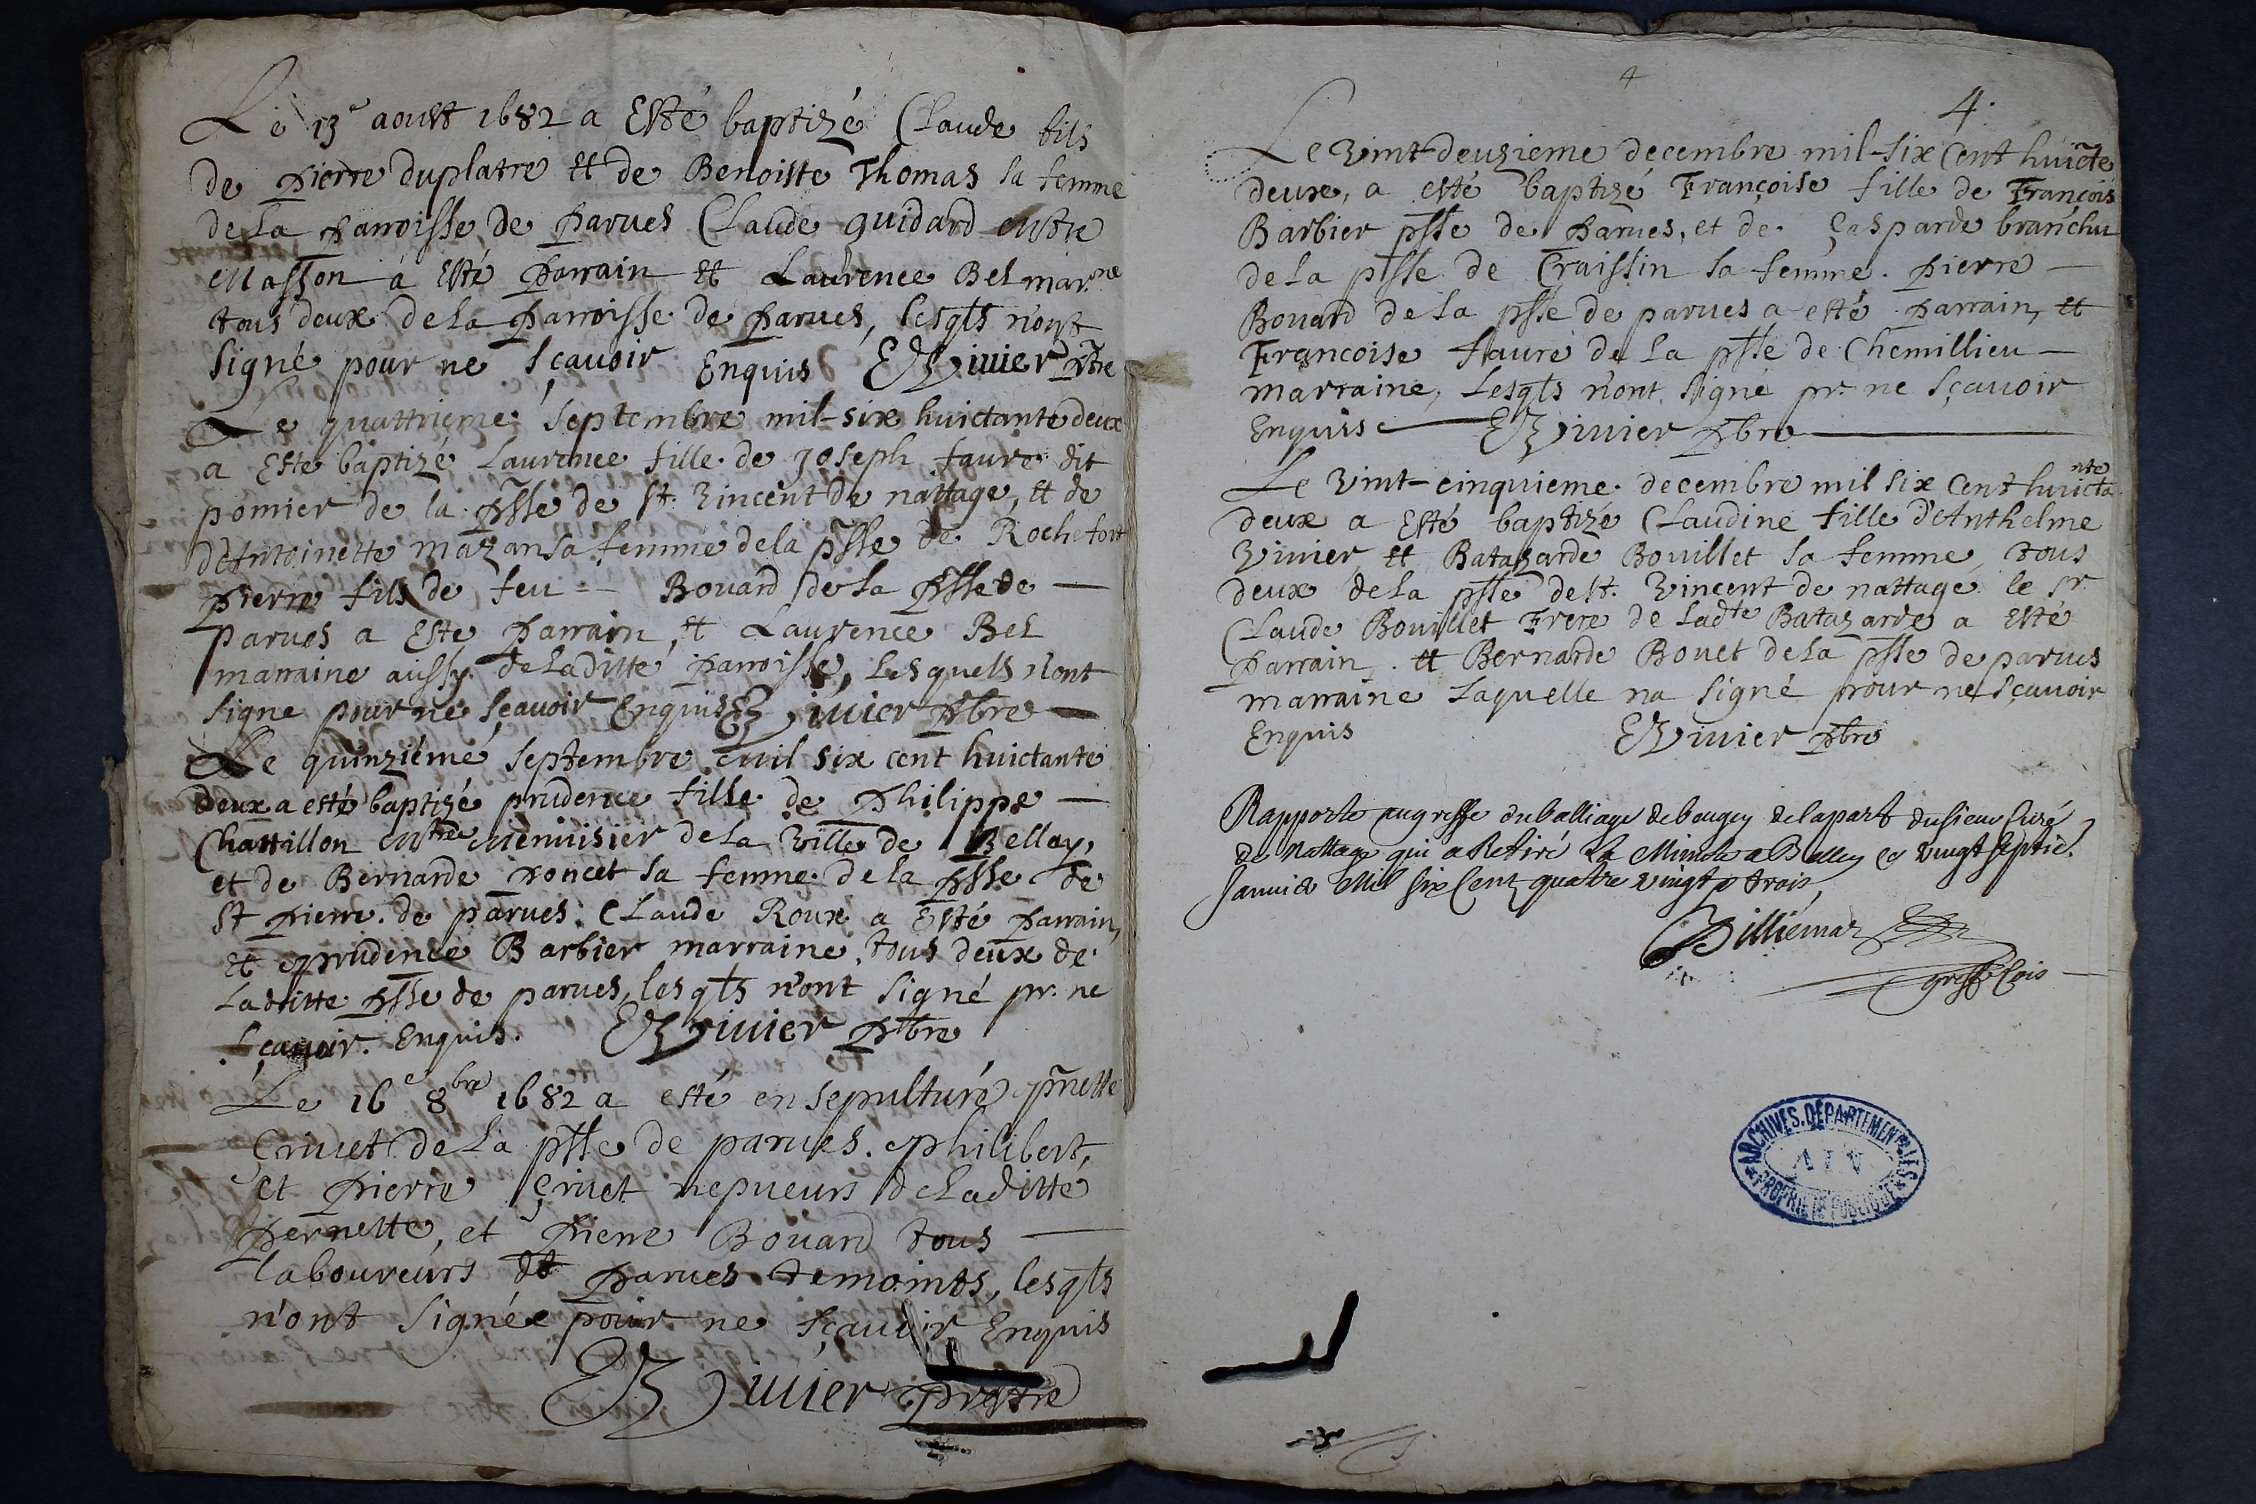 Le 13e aoust 1682 a Esté baptizé Claude fils
de pierre duplatre et de Benoiste Thomas sa femme
de la parroisse de parues Claude guidard
Masson a Esté parrain et Laurence Bel marrne
tous deux de la parroisse de parues, lesqls n'ont
signé pour ne sçauoir Enquis Viuier pbre
Le quattrieme septembre mil-six huictante deux
a Este baptizé Laurence fille de Joseph faure dit
pomier de la psse de St. Vincent de nattage, et de
d'Antoinette mazan sa femme de la psse de Rochefort
pierre fils de feu Bouard de la psse de
parues a Este parrain et Laurence Bel
marraine aussy de la ditte parroisse, Lesquels n'ont
signe pour ne sçauoir Enquis Viuier pbre
Le quinziémé septembre mil six cent huictante
deux a esté baptizé prudence fille de philippe
Chattillon menuisier de la Ville de Belley,
et de Bernarde poncet sa femme de la psse de
St pierre de parues. Claude Roux a Esté parrain,
et prudence Barbier marraine, tous deux de
La ditte psse de parues, lesqls n'ont signé pr. ne
sçauoir. Enquis. Viuier pbre
Le 16e 8bre 1682 a esté ensepulturé pnette
Criuet de La psse de parues. philibert,
et pierre Criuet nepueurs de La ditte
pernette, et pierre Bouard tous
laboureurs de parues temoints, lesqls
n'ont signée pour ne sçauoir Enquis
Viuier prestre
4
4.
Le Vint-deuzieme decembre mil-six Cent huicte
deux, a esté baptizé Françoise fille de François
Barbier psse de parues, et de Gasparde branchu
de la psse de Traissin sa femme. pierre
Bouard de la psse de parues a esté parrain, et
Françoise faure de la psse de Chemillieu
marraine, Lesqls n'ont signé pr. ne sçauoir
Enquis Viuier pbre
Le Vint-cinquieme decembre mil six Cent huictante
deux a Esté baptizé Claudine fille d'Anthelme
Viuier et Batazarde Bouillet sa femme, tous
deux de la psse de St. Vincent de nattage le sr
Claude Bouillet Frere de Ladte Batazarde a esté
parrain. et Bernarde Bouet de la psse de parues
marraine Laquelle na signé pour ne sçauoir
Enquis Viuier pbre
Rapporte au greffe du balliage de beugey de la part du sieur Curé
de Nattage qui a Retiré la Minute a Belley ce vingt septie.
Januier Mil six Cent quatre vingt trois,
Billiémaz
ARCHIVES DÉPARTEMENTALES
AIN
PROPRIÉTÉ PUBLIQUE